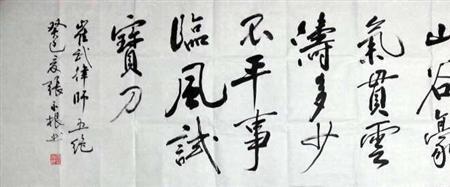 山谷豪
氣貫雲
濤多少
不平事
臨風試
寶刀
崔武律師五絕
癸巳夏張永根书